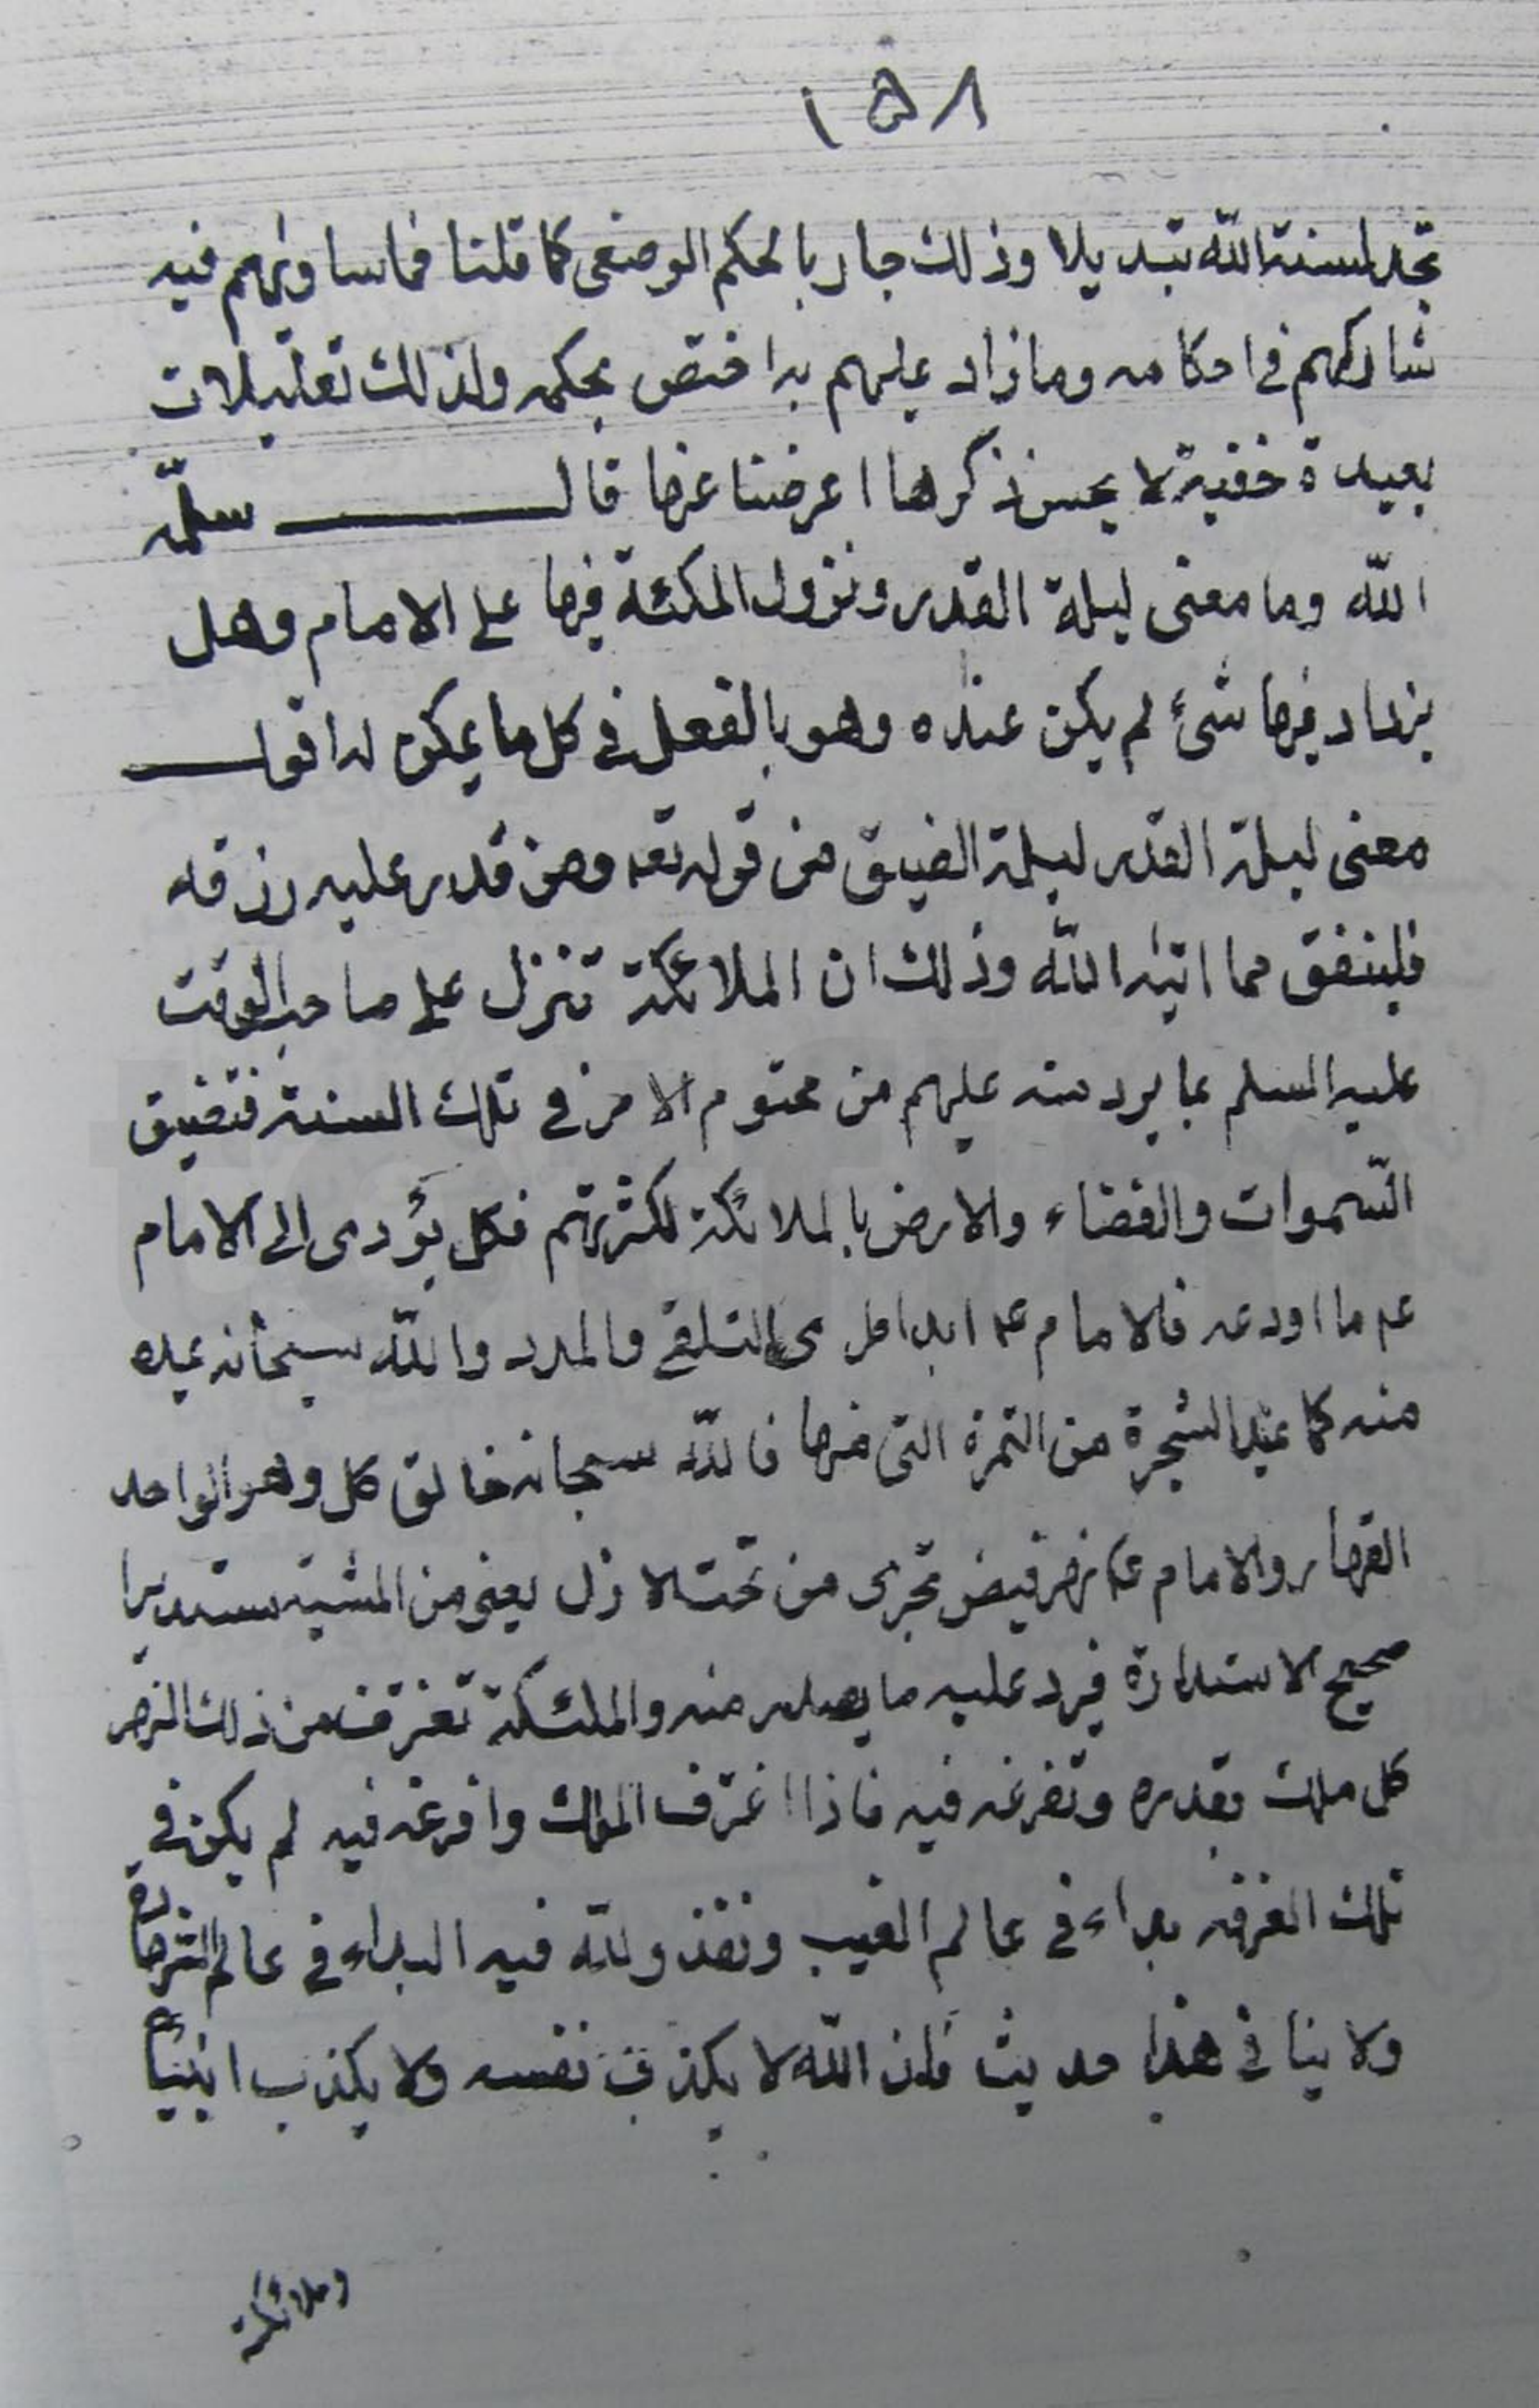 ١٥٨
تجد لسنة الله تبديلا وذلك جار بالحكم الوضعى كما قلنا فما ساويهم فيه
شاركهم فى احكامه وما زاد عليهم به اختص بحكمه ولذلك تعليلات
بعيدة خفية لا يحسن ذكرها اعرضنا عنها قال سلمه
الله وما معنى ليلة القدر ونزول الملئكة فيها على الامام وهل
يزداد فيها شئ لم يكن عنده وهو بالفعل فى كل ما يمكن له اقول
معنى ليلة القدر ليلة الضيق من قوله تعه ومن قدر عليه رزقه
فلينفق مما اتيه الله وذلك ان الملائكة تنزل على صاحب الوقت
عليه السلم بما يرد منه عليهم من محتوم الامر فى تلك السنة فتضيق
السموات والفضاء والارض بالملائكة لكثرتهم فكل يؤدى الى الامام
عم ما اودعه فالامام عم ابدا فى التلقى والمدد والله سبحانه يمده
منه كما يمد الشجرة من الثمرة التى منها فالله سبحانه خالق كل وهو الواحد
القهار والامام عم نهر فيض تجرى من تحت الازل يعنى من المشية مستديرا
صحيح الاستدارة فيرد عليه ما يصدر منه والملئكة تغترف من ذلك النهر
كل ملك بقدره وتفرغه فيه فاذا اغترف الملك وافرغه فيه لم يكن فى
تلك الغرفه بداء فى عالم الغيب ونفذ ولله فيه البداء فى عالم الشهادة
ولا ينافى هذا حديث فان الله لا يكذب نفسه ولا يكذب انبيائه
وملائكته